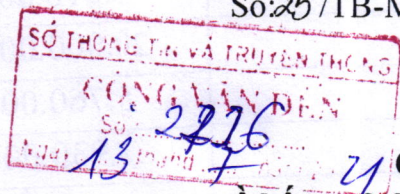 Số: 25 /TB-M
SỞ THÔNG TIN VÀ TRUYỀN THÔNG
CÔNG VĂN ĐẾN
Số
Ngày 13 tháng 7